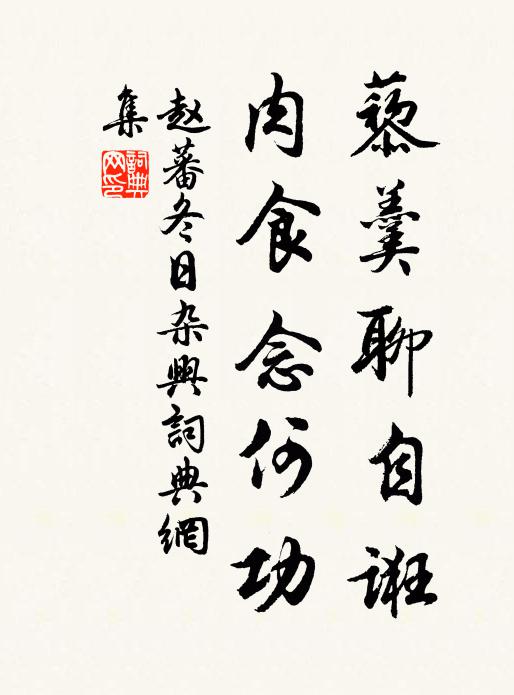 藜羹聊自诳
肉食念何功
赵蕃冬日杂興詞典網
集
詞典
网印